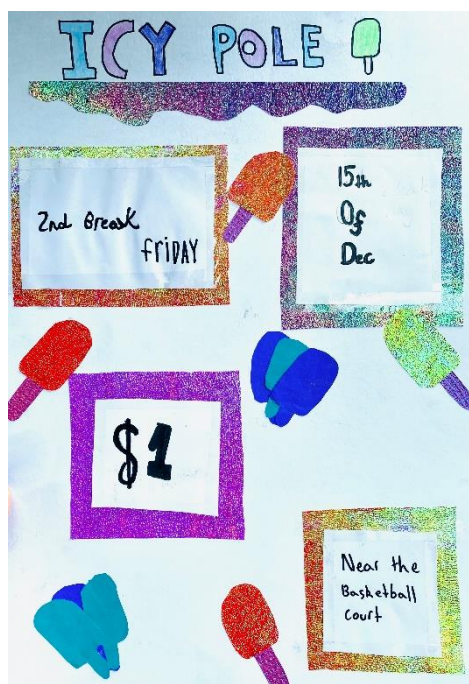 ICY POLE
2nd Break
FRIDAY
15th
Of
Dec
$1
Near the
Basketball
court